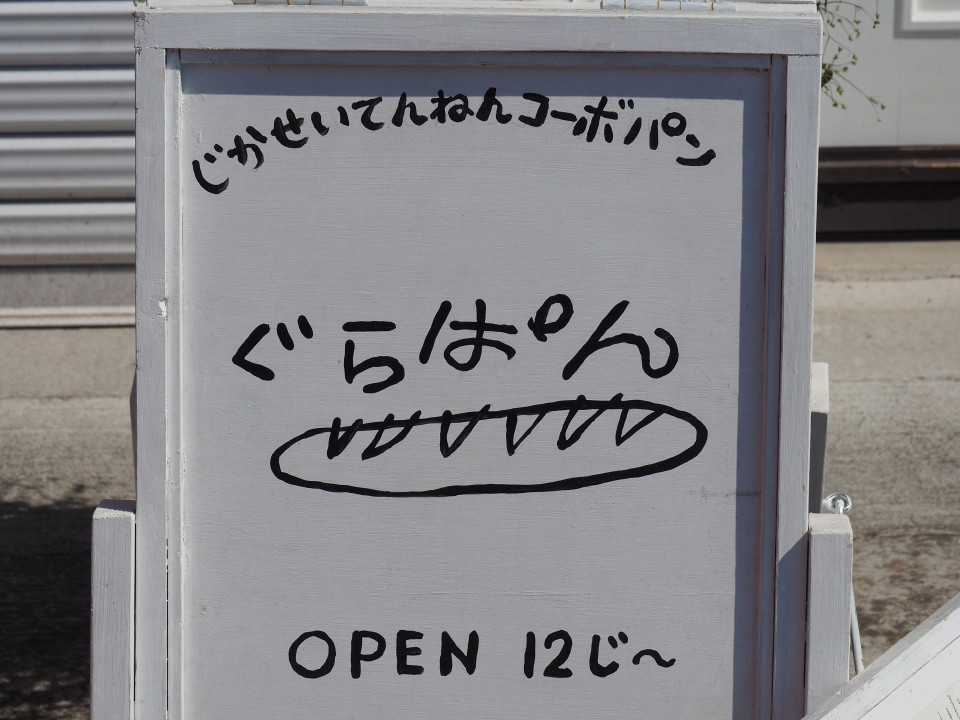 じかせいてんねんコーボパン
ぐらぱん
OPEN 12じ〜